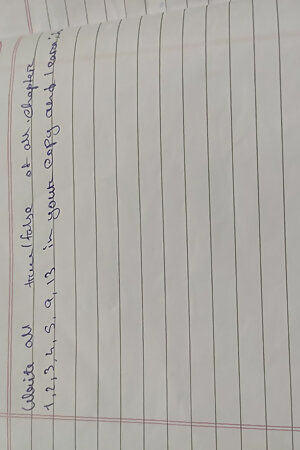 Write all true/false of all chapter
1,2,3,4,5,9,13 in your copy and learn it